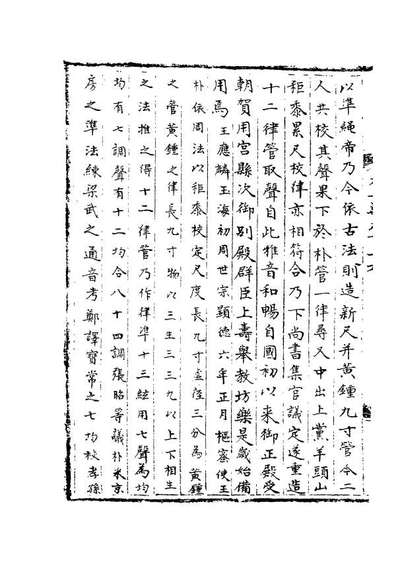 以準繩帝乃令依古法則造新尺并黃鍾九寸管令二
人共校其聲果下於朴管一律尋又中出上黨羊頭山
秬黍累尺校律亦相符合乃下尚書集官議定遂重造
十二律管取聲自此雅音和暢自國初以來御正殿受
朝賀用宮縣次御別殿群臣上壽舉教坊樂是歲始備
用焉王應麟玉海初周世宗顯德六年正月樞密使王
朴依周法以秬黍校定尺度長九寸虛徑三分為黃鍾
之管黃鍾之律長九寸物以三生三三九以上下相生
之法推之得十二律管乃作律準十三絃用七聲為均
均有七調聲有十二均合八十四調張昭等議朴采京
房之準法練梁武之通音考鄭譯寶常之七均校孝孫